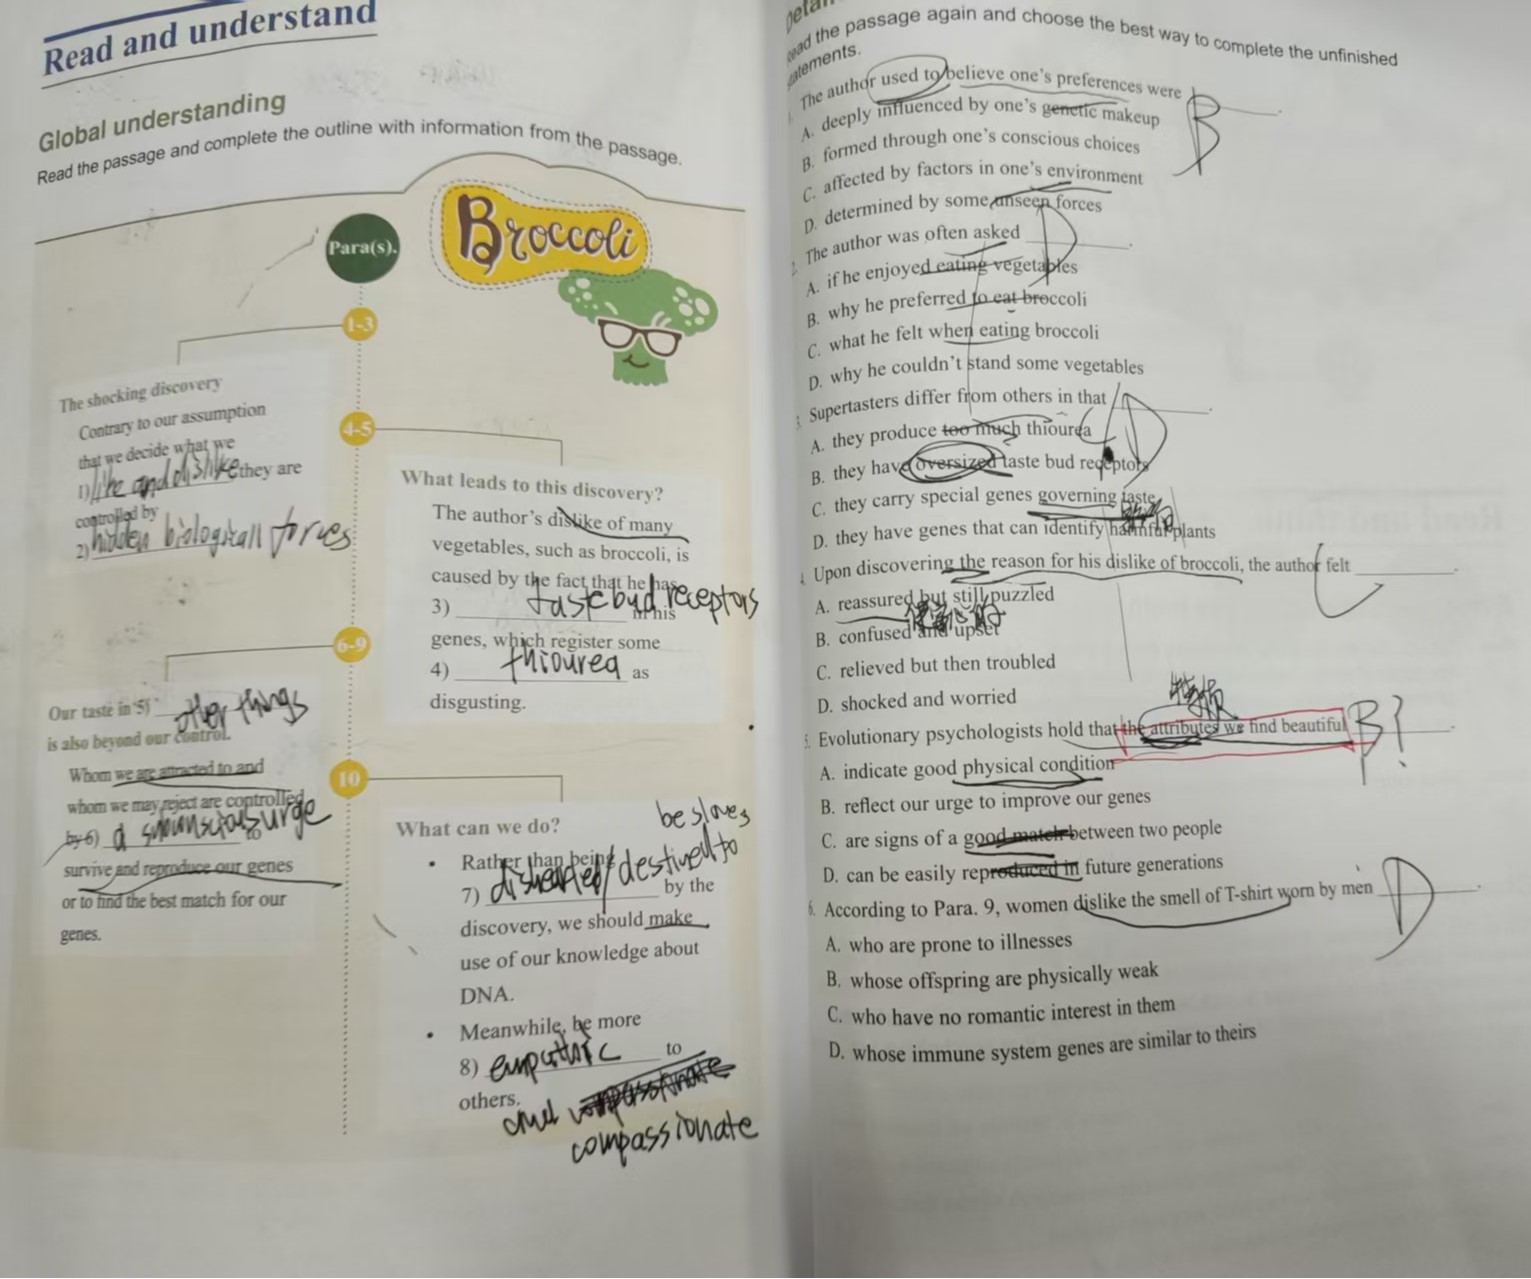 Read and understand
Global understanding
Read the passage and complete the outline with information from the passage.
Para(s).
Broccoli
1-3
The shocking discovery
Contrary to our assumption
that we decide what we
1) like and dislike they are
controlled by
2) hidden biologicall forces
4-5
What leads to this discovery?
The author's dislike of many
vegetables, such as broccoli, is
caused by the fact that he has
3) taste bud receptors in his
genes, which register some
4) thiourea as
disgusting.
6-9
Our taste in 5) other things
is also beyond our control.
Whom we are attracted to and
whom we may reject are controlled
by 6) a subconscious urge to
survive and reproduce our genes
or to find the best match for our
genes.
10
What can we do?
be slaves
• Rather than being
7) dishearted/destined to by the
discovery, we should make
use of our knowledge about
DNA.
• Meanwhile, be more
8) empathic to
others.
and compassionate
compassionate
Read the passage again and choose the best way to complete the unfinished
statements.
The author used to believe one's preferences were B
A. deeply influenced by one's genetic makeup
B. formed through one's conscious choices
C. affected by factors in one's environment
D. determined by some unseen forces
The author was often asked D
A. if he enjoyed eating vegetables
B. why he preferred to eat broccoli
C. what he felt when eating broccoli
D. why he couldn't stand some vegetables
Supertasters differ from others in that D
A. they produce too much thiourea
B. they have oversized taste bud receptors
C. they carry special genes governing taste
D. they have genes that can identify harmful plants
4. Upon discovering the reason for his dislike of broccoli, the author felt C
A. reassured but still puzzled
B. confused and upset
C. relieved but then troubled
D. shocked and worried
5. Evolutionary psychologists hold that the attributes we find beautiful B?
A. indicate good physical condition
B. reflect our urge to improve our genes
C. are signs of a good match between two people
D. can be easily reproduced in future generations
6. According to Para. 9, women dislike the smell of T-shirt worn by men D
A. who are prone to illnesses
B. whose offspring are physically weak
C. who have no romantic interest in them
D. whose immune system genes are similar to theirs